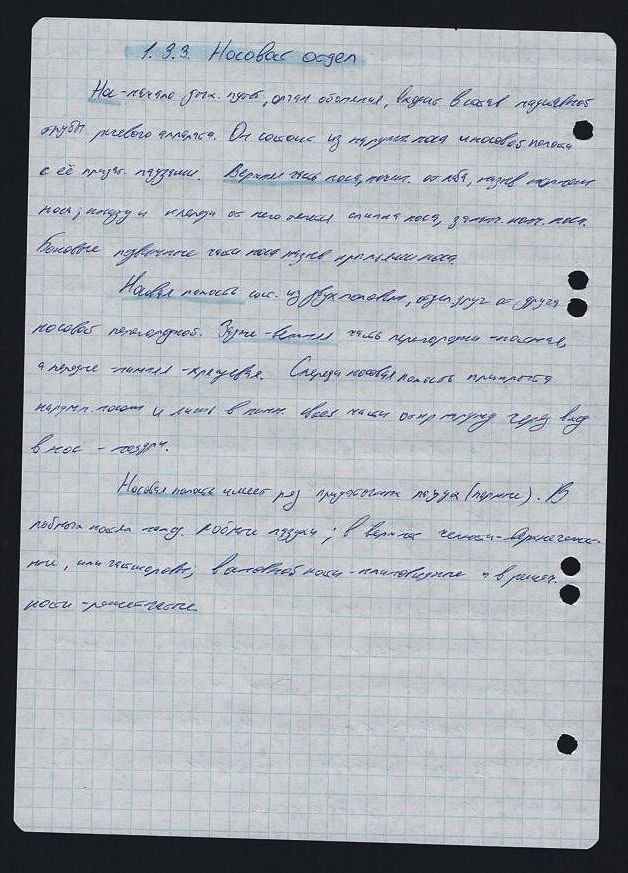 1.3.3. Носовой отдел
Нос - начало дых. путей, орган обоняния, входит в состав надставной
трубы речевого аппарата. Он состоит из наружн. носа и носовой полости
с её придат. пазухами. Верхняя часть носа, начин. от лба, назыв.
носа; книзу и кпереди от него лежит спинка носа, носа.
Боковые подвижные части носа назыв. крыльями носа.
Носовая полость сост. из двух половин, отдел. друг от друга
носовой перегородкой. Задне-верхняя часть перегородки - костная,
а передне-нижняя - хрящевая. Спереди носовая полость прикрыта
наружн. носом и лишь в нижн. своей части наружу через вход
в нос - ноздри.
Носовая полость имеет ряд придаточных пазух (парные). В
лобных костях лобные пазухи; в верхней челюсти - верхнечелюст-
ные, или гайморовы; в основной кости - клиновидные и в решетч.
кости - решетчатые.